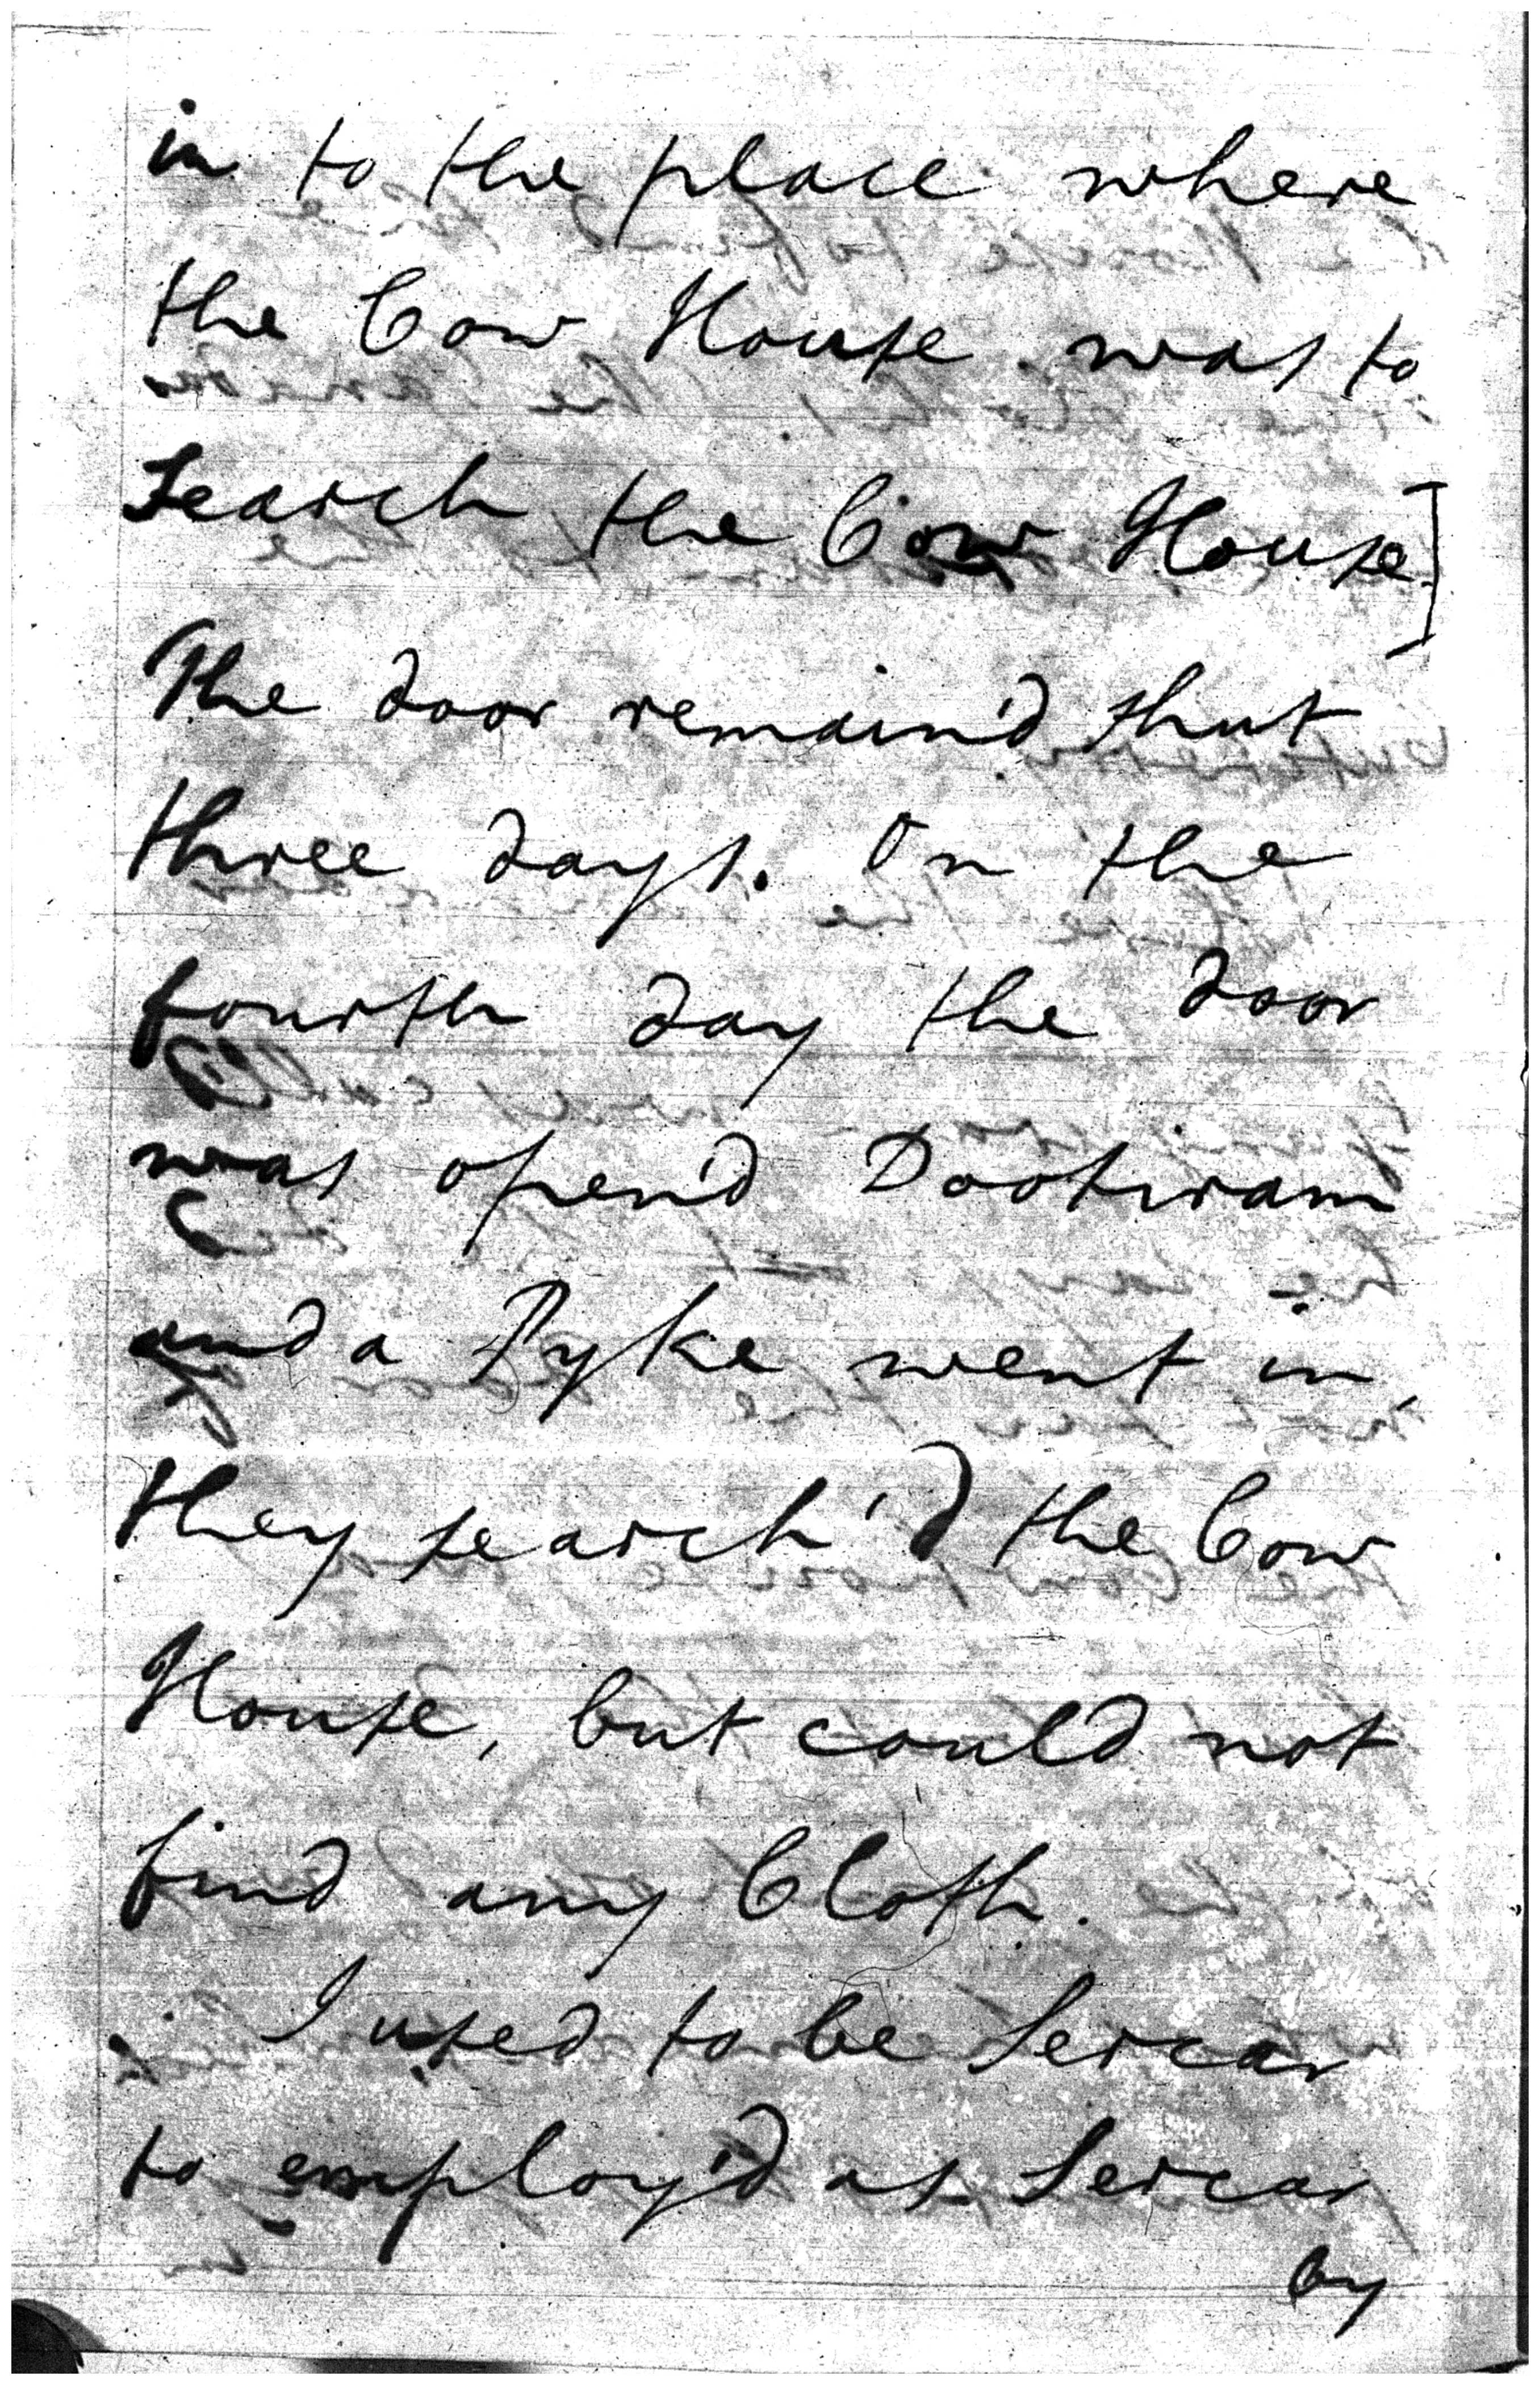 in to the place where
the Cow House was to
Search the Cow House]
The door remain'd shut
three days. On the
fourth day the door
was open'd Dootiram
and a Pyke went in,
they search'd the Cow
House, but could not
find any Cloth.
I used to be Sercar
to employ'd as Sercar
by